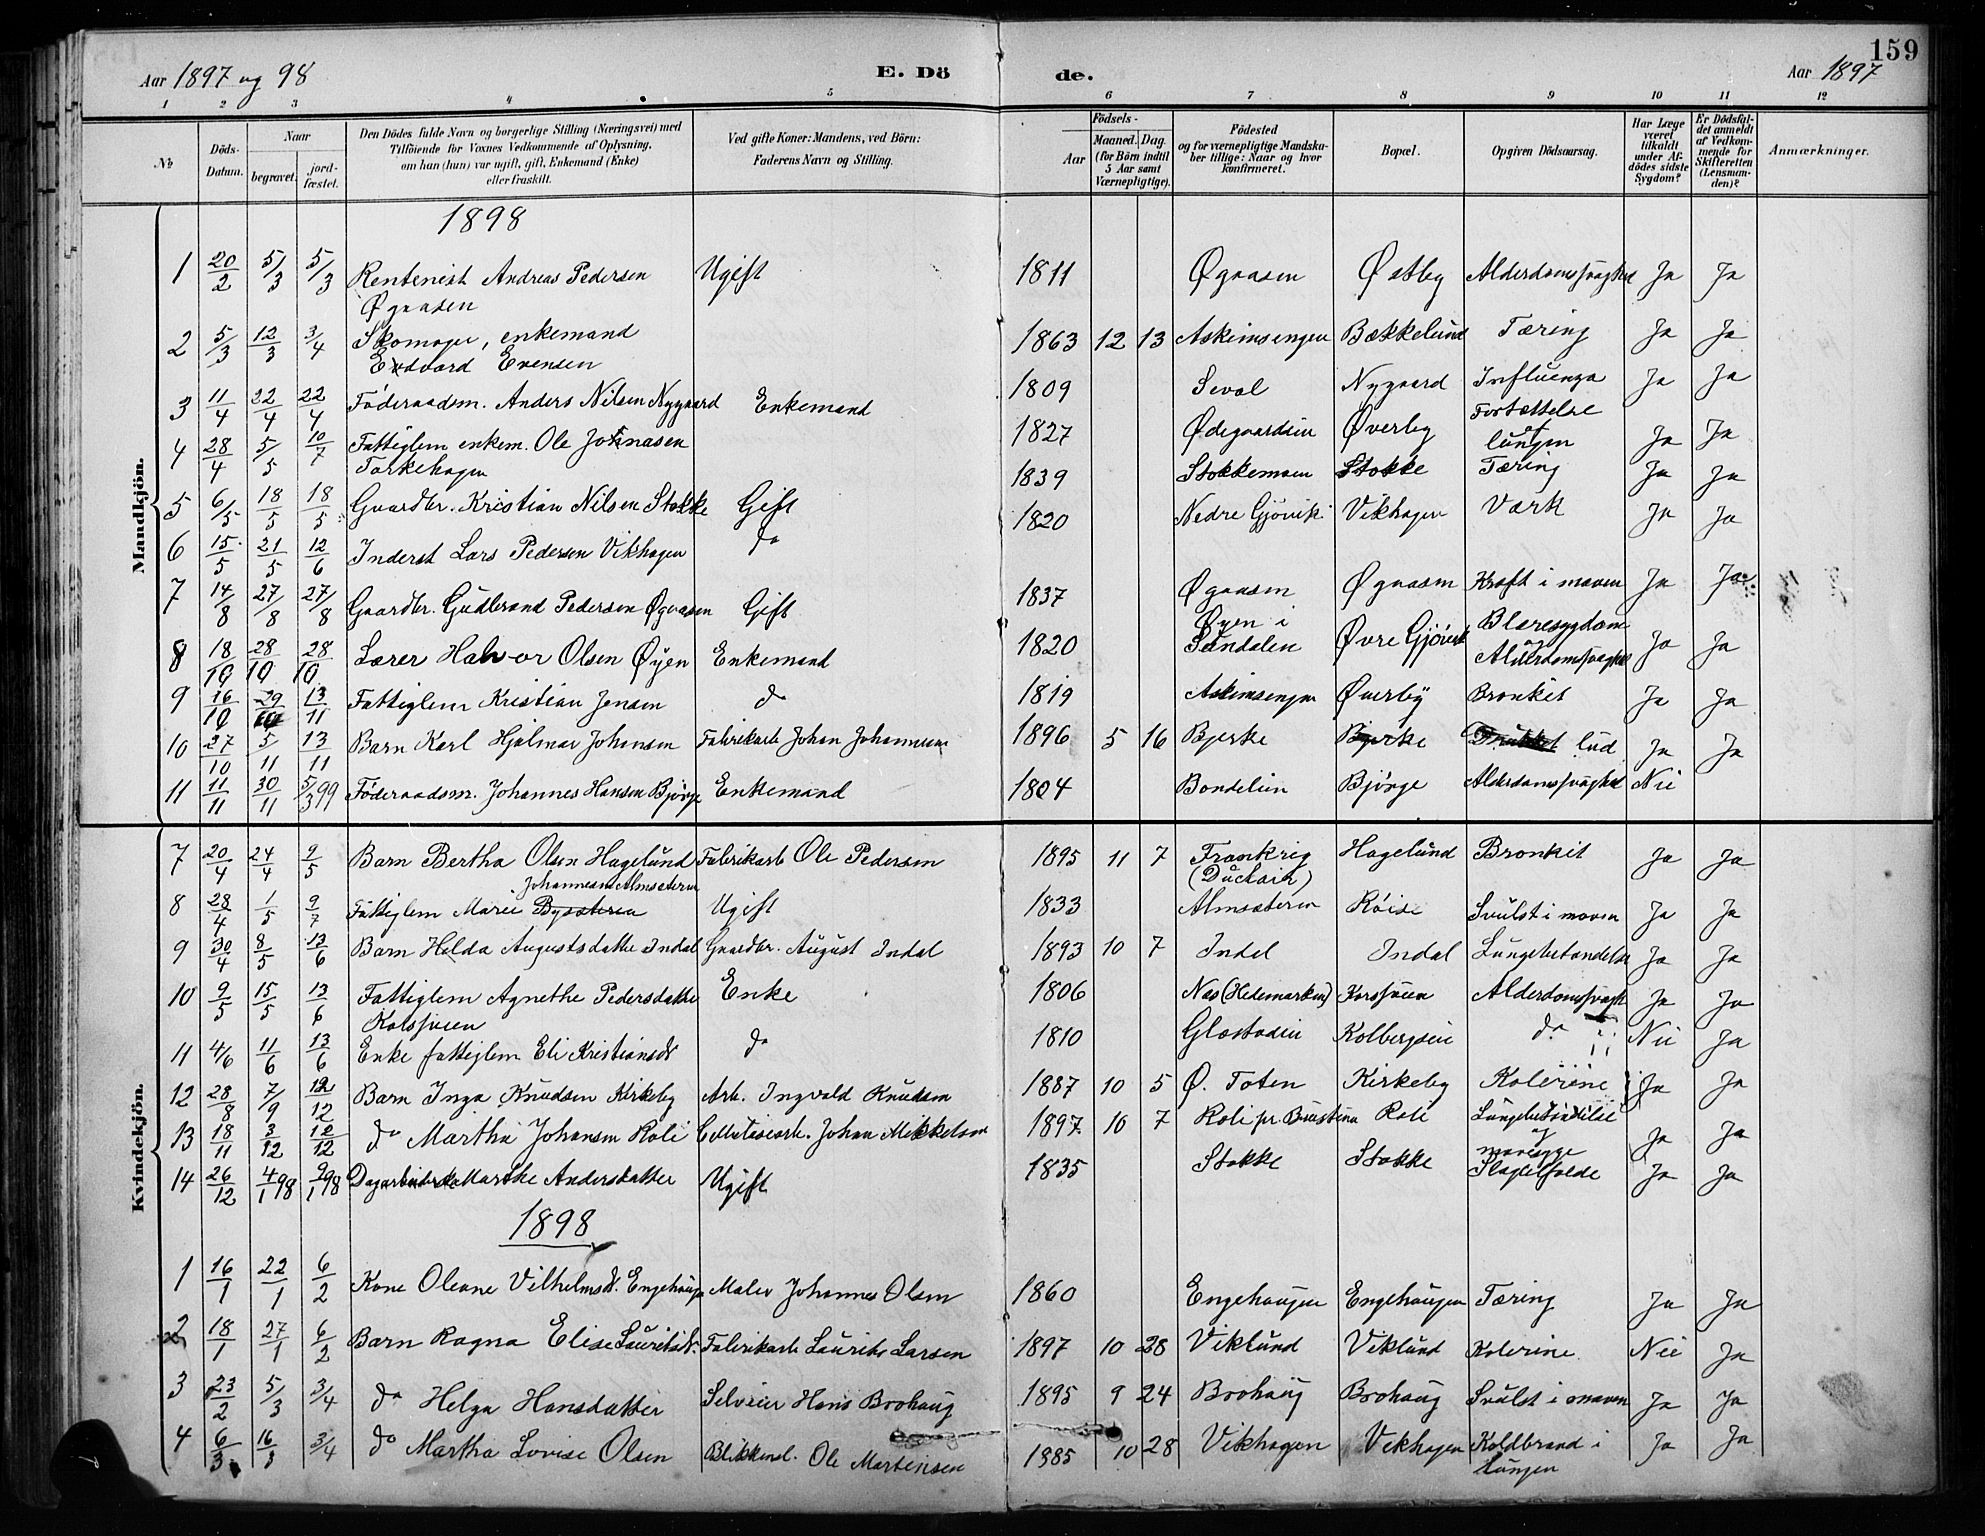 159
Aar 1897 og 98 E. Dö de. Aar 1897
1 2 3 4 5 6 7 8 9 10 11 12
№ Döds-Datum. Naar begravet. jord-fæstet. Den Dödes fulde Navn og borgerlige Stilling (Næringsvei) med Tilföiende for Voxnes Vedkommende af Oplysning, om han (hun) var ugift, gift, Enkemand (Enke) eller fraskilt. Ved gifte Koner: Mandens, ved Börn: Faderens Navn og Stilling. Födsels- Aar Maaned. Dag. (for Börn indtil 5 Aar samt Værnepligtige). Födested og for værnepligtige Mandskaber tillige: Naar og hvor konfirmeret. Bopæl. Opgiven Dödsaarsag. Har Læge været tilkaldt under Afdödes sidste Sygdom? Er Dödsfaldet anmeldt af Vedkommende for Skifteretten (Lensmanden)? Anmærkninger.
Mandkjön.
1898
1 20/2 5/3 5/3 Rentenist Andreas Pedersen Øgaasen Ugift 1811 Øgaasen Østby Alderdomssvaghed Ja Ja
2 5/3 12/3 3/4 Skomager, enkemand Edvard Evensen 1863 12 13 Askimsengen Bækkelund Tæring Ja Ja
3 11/4 22/4 22/4 Föderaadsm. Anders Nilsen Nygaard Enkemand 1809 Seval Nygaard Influenza Ja Ja
4 28/4 5/5 10/7 Fattiglem enkem. Ole Johnasen Torkehagen 1827 Ødegaardseien Øverby Fortættelse af lungen Ja Ja
5 6/5 18/5 18/5 Gaardbr. Kristian Nilsen Stokke Gift 1839 Stokkemoen Stokke Tæring Ja Ja
6 15/5 21/5 12/6 Inderst Lars Pedersen Vikhagen do 1820 Nedre Gjövik Vikhagen Værk Ja Ja
7 14/8 27/8 27/8 Gaardbr. Gudbrand Pedersen Øgaasen Gift 1837 Øgaasen Øgaasen Kræft i maven Ja Ja
8 18/10 28/10 28/10 Lærer Halvor Olsen Øyen Enkemand 1820 Øyen i Sundalen Øvre Gjövik Blæresygdom og Alderdomssvaghed Ja Ja
9 16/10 29/10 13/11 Fattiglem Kristian Jensen do 1819 Askimsengen Øverby Bronkit Ja Ja
10 27/10 5/11 13/11 Barn Karl Hjalmar Johansen Fabrikarb Johan Johannesen 1896 5 16 Bjerke Bjerke lud Ja Ja
11 11/11 30/11 5/3 99 Föderaadsm. Johannes Hansen Bjørge Enkemand 1804 Bondelien Bjørge Alderdomssvaghed Nei
Kvindekjön.
7 20/4 24/4 9/5 Barn Bertha Olsen Hagelund Fabrikarb Ole Pedersen 1895 11 7 Frankrig Hagelund Bronkit Ja Ja
8 28/4 1/5 9/7 Fattiglem Marie Johannesens Almsæteren Ugift 1833 Almsæteren Röise Svulst i maven Ja Ja
9 30/4 8/5 13/6 Barn Helda Augustsdatter Indal Gaardbr. August Indal 1893 10 7 Indal Indal Lungebetændelse Ja Ja
10 9/5 15/5 13/6 Fattiglem Agnethe Pedersdatter Korssveen Enke 1806 Nes (Hedemarken) Korssveen Alderdomssvagh Ja Ja
11 4/6 11/6 13/6 Enke fattiglem Eli Kristiansdt do 1810 Glæstadeie Kolbergseie do Nei Ja
12 28/8 7/9 12/12 Barn Inga Knudsen Kirkeby Arb. Ingvald Knudsen 1887 10 5 Ø. Toten Kirkeby Kolerine Ja Ja
13 18/11 3/12 12/12 do Martha Johansen Roli Cellulosearb. Johan Mikkelsen 1897 10 7 Roli Roli Lungebetændelse og mavesyge Ja Ja
14 26/12 4/1 98 9/1 98 Dagarbeiderske Marthe Andersdatter Ugift 1835 Stokke Stokke Slagtilfælde Ja Ja
1898
1 16/1 22/1 6/2 Kone Oleane Vilhelmsdt. Engehaugen Maler Johannes Olsen 1860 Engehaugen Engehaugen Tæring Ja Ja
2 18/1 27/1 6/2 Barn Ragna Elise Lauritsdt. Fabrikarb Laurits Larsen 1897 10 28 Viklund Viklund Kolerine Nei Ja
3 23/2 5/3 3/4 do Helga Hansdatter Selveier Hans Brohaug 1895 9 24 Brohaug Brohaug Svulst i maven Ja Ja
4 6/3 16/3 3/4 do Martha Lovise Olsen Blikkensl. Ole Martensen 1885 10 28 Vikhagen Vikhagen Koldbrand i lungen Ja Ja